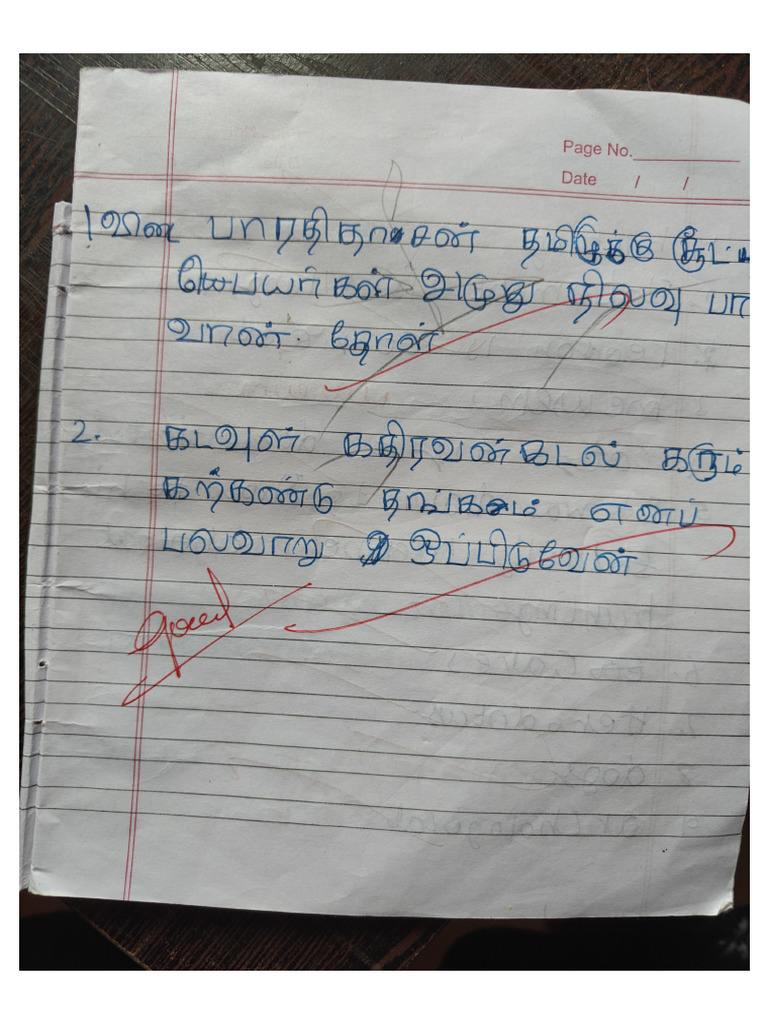 Page No.
Date / /
1 விடை பாரதிதாசன் தமிழுக்கு சூட்டி
பெயர்கள் அமுது நிலவு பா
வான். தோள்
2. கடவுள் கதிரவன் கடல் கரும்
கற்கண்டு தங்கம் எனப்
பலவாறு ஒப்பிடுவேன்
good